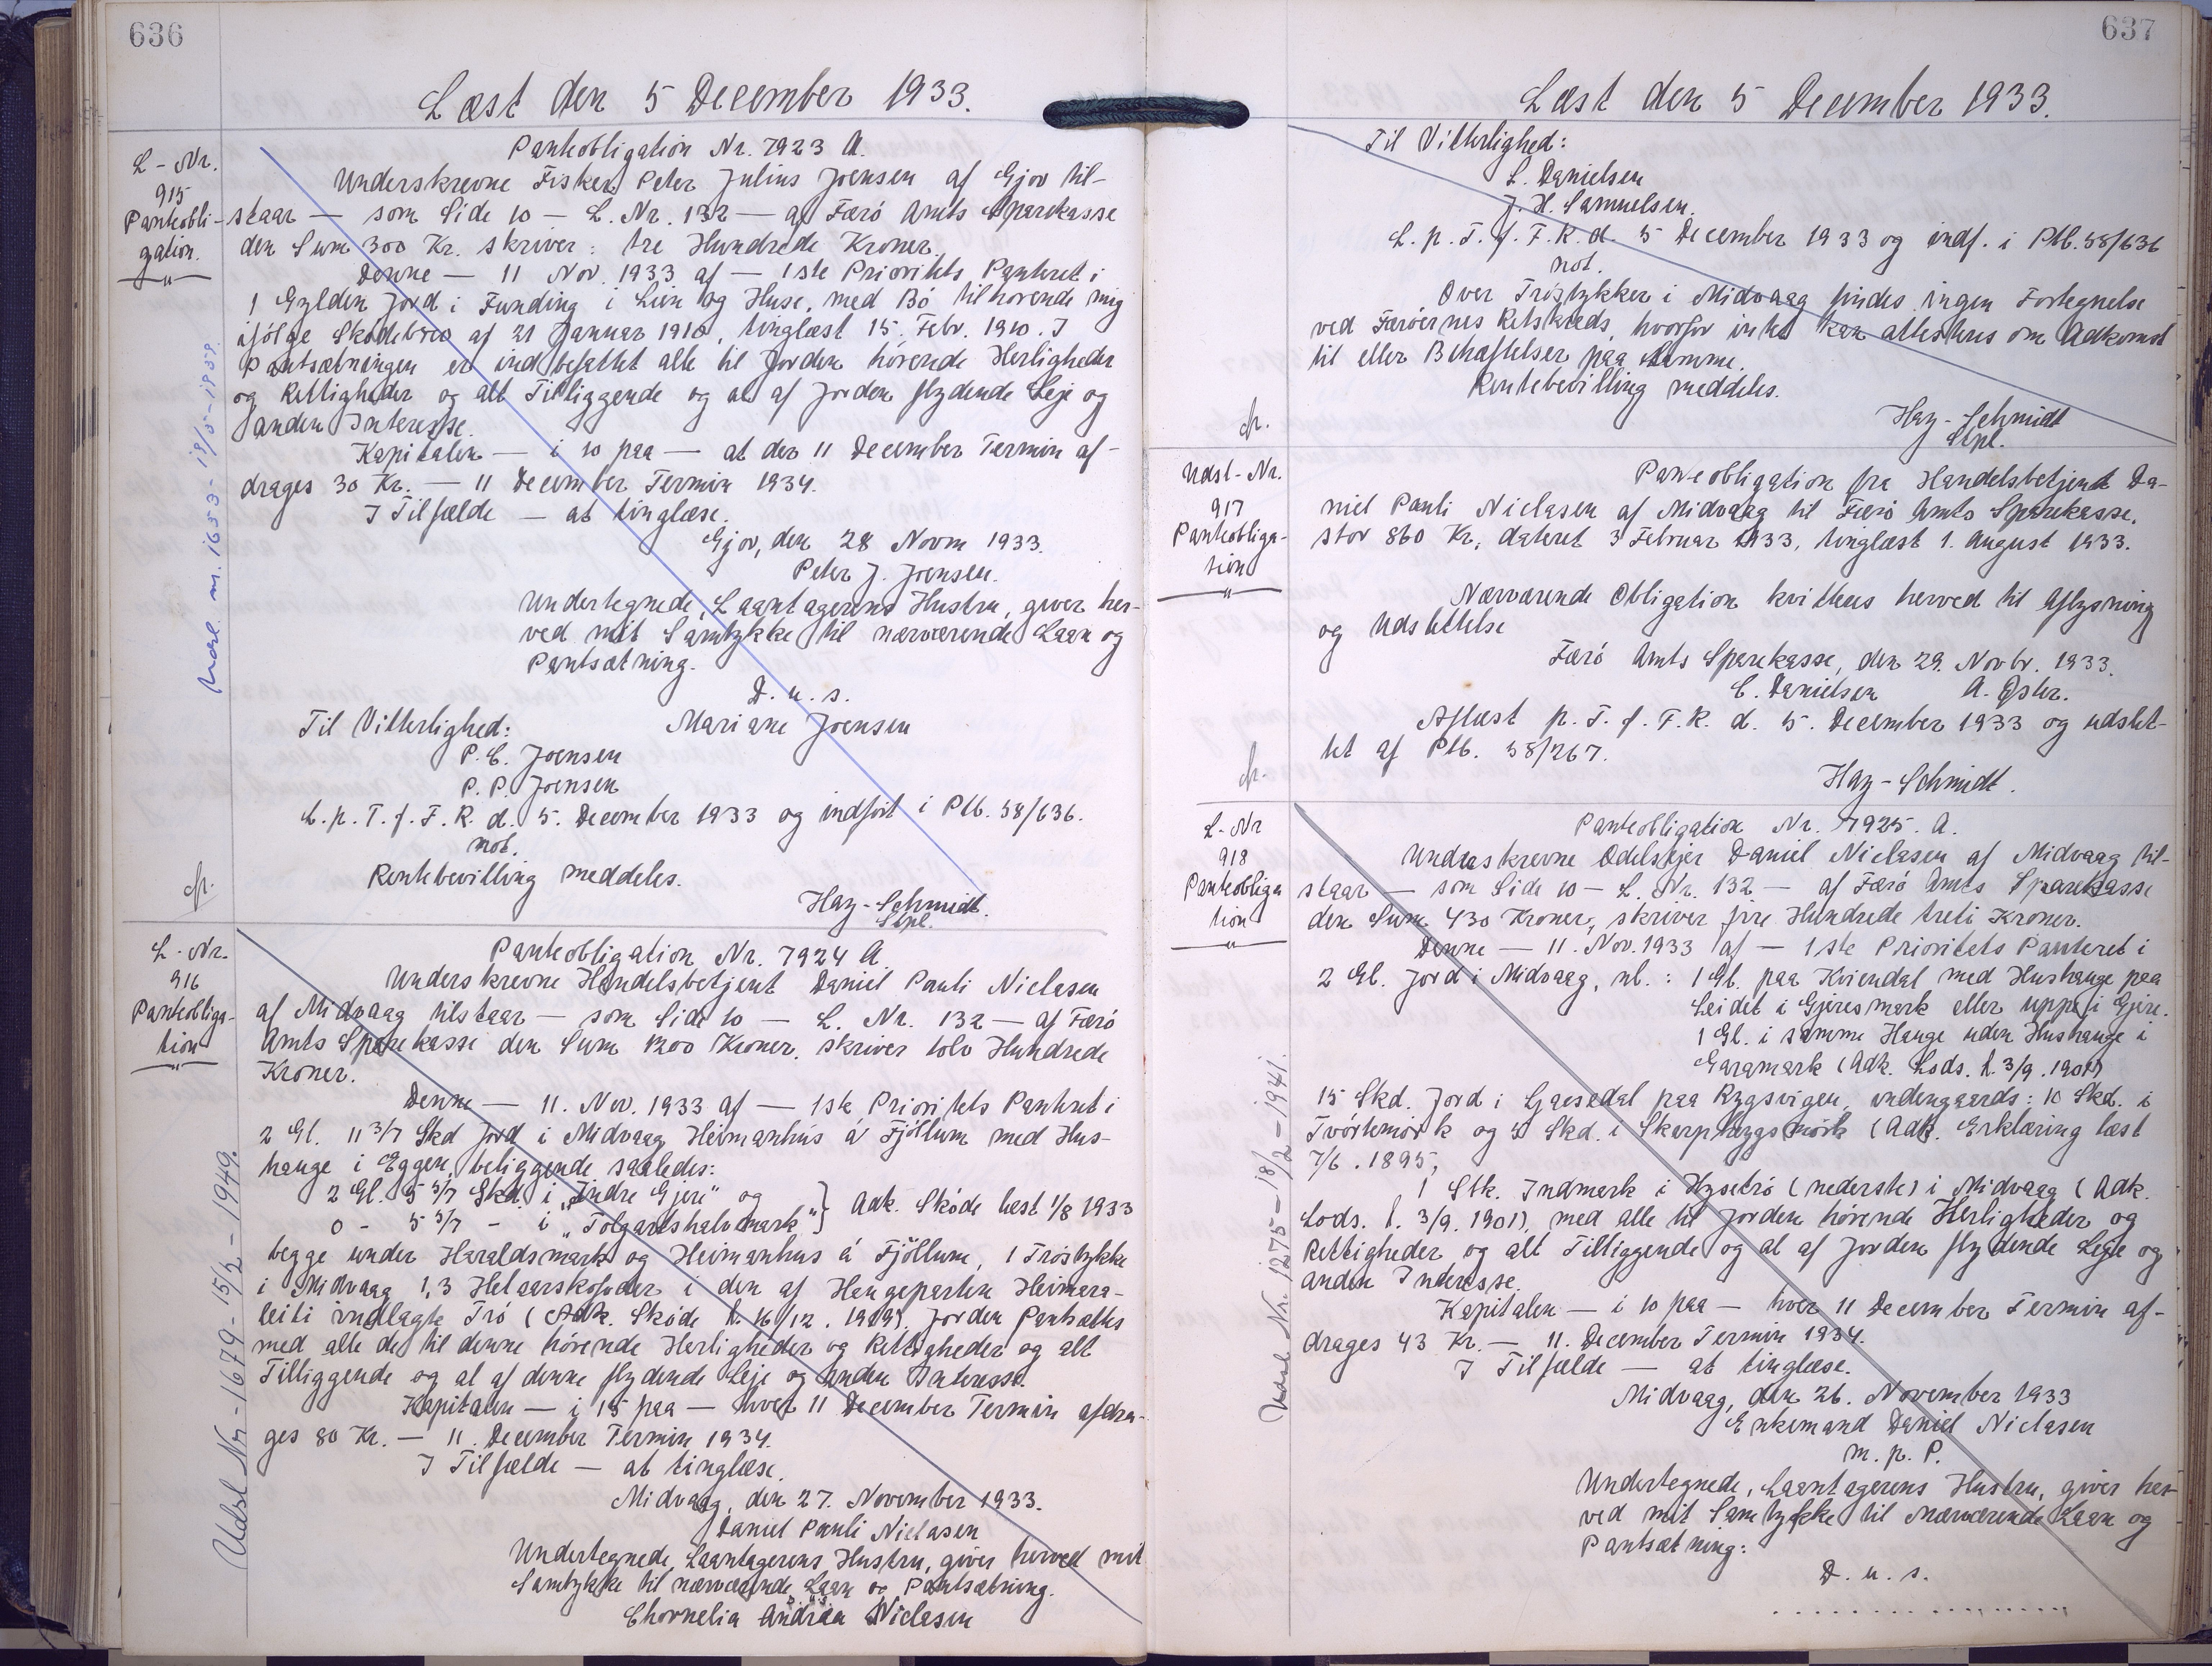 636
Læst den 5 December 1933.
L-Nr.
915
Panteobli-
gation.
Panteobligation Nr. 7923 A.
Underskrevne Fisker Peter Julius Joensen af Gjov til-
staar — som Side 10 — L. Nr. 132 — af Færö Amts Sparekasse
den Sum 300 Kr. skriver: tre Hundrede Kroner.
Denne — 11 Nov. 1933 af — 1ste Prioritets Panteret i
1 Gylden Jord i Funding i Lien og Huse, med Bö tilhörende mig
ifölge Sködebrev af 21 Januar 1910, tinglæst 15. Febr. 1910. I
Pantsætningen er indbefattet alle til Jorden hörende Herligheder
og Rettigheder og alt Tilliggende og al af Jorden flydende Leje og
anden Interesse.
Kapitalen — i 10 paa — at der 11 December Termin af-
drages 30 Kr. — 11 December Termin 1934.
I Tilfælde — at tinglæse.
Gjov, den 28 Novm 1933.
Peter J. Joensen.
Undertegnede, Laantagerens Hustru, giver her-
ved mit Samtykke til nærværende Laan og
Pantsætning.
D. u. s.
Til Vitterlighed: Mariane Joensen
P. C. Joensen
P. P. Joensen
L. p. T. f. F. R. d. 5. December 1933 og indfört i Ptb. 38/636.
not.
Rentebevilling meddeles.
Hay-Schmidt.
Stpl.
Udsl. m. 1653-18/5-1938.
L-Nr.
916
Panteobliga-
tion
Panteobligation Nr. 7924 A.
Underskrevne Handelsbetjent Daniel Pauli Niclasen
af Midvaag tilstaar — som Side 10 — L. Nr. 132 — af Færö
Amts Sparekasse den Sum 1200 Kroner, skriver tolv Hundrede
Kroner.
Denne — 11. Nov. 1933 af — 1ste Prioritets Panteret i
2 Gl. 11 3/7 Skd Jord i Midvaag Heimanhús á Fjöllum med Hus-
hauge i Eggen, beliggende saaledes:
2 Gl. 5 3/7 Skd. i "Indre Gjeri" og } Adk. Sköde læst 1/8 1933
0 - 5 3/7 - i "Tolgartshalvmark"
begge under Haraldsmark og Heimanhus á Fjöllum, 1 Tröstykke
i Midvaag 1,3 Helaarskofoder i den af Haugeparten Heimara-
leiti indlagte Trö (Adk. Sköde l. 16/12. 1919). Jorden Pantsættes
med alle de til denne hörende Herligheder og Rettigheder og alt
Tilliggende og al af denne flydende Leje og anden Interesse.
Kapitalen — i 15 paa — hver 11 December Termin afdra-
ges 80 Kr. — 11. December Termin 1934.
I Tilfælde — at tinglæse.
Midvaag, den 27. November 1933.
Daniel Pauli Niclasen
Undertegnede, Laantagerens Hustru, giver herved mit
Samtykke til nærværende Laan og Pantsætning.
D. u. s.
Chornelia Andrea Niclasen
Udsl Nr.-1679-15/2-1949.
637
Læst den 5 December 1933.
Til Vitterlighed:
L. Danielsen
J. H. Samuelsen.
L. p. T. f. F. R. d. 5 December 1933 og indf. i Ptb. 38/636
not.
Over Tröstykker i Midvaag findes ingen Fortegnelse
ved Færöernes Retskreds, hvorfor intet kan attesteres om Adkomst
til eller Behæftelser paa samme.
Rentebevilling meddeles.
Hay-Schmidt
Stpl.
Udsl-Nr.
917
Panteobliga-
tion
Panteobligation fra Handelsbetjent Da-
niel Pauli Niclasen af Midvaag til Færö Amts Sparekasse,
stor 860 Kr., dateret 3 Februar 1933, tinglæst 1. August 1933.
Nærværende Obligation kvitteres herved til Aflysning
og Udslettelse
Færö Amts Sparekasse, den 29. Novbr. 1933.
C. Danielsen A. Öster.
Aflæst p. T. f. F. R. d. 5. December 1933 og udslet-
tet af Ptb. 38/267.
Hay-Schmidt.
L-Nr
918
Panteobliga
tion
Panteobligation Nr. 7925. A.
Underskrevne Odelsejer Daniel Niclasen af Midvaag til-
staar — som Side 10 — L. Nr. 132 — af Færö Amts Sparekasse
den Sum 430 Kroner, skriver fire Hundrede treti Kroner.
Denne — 11. Nov. 1933 af — 1ste Prioritets Panteret i
2 Gl. Jord i Midvaag, nl.: 1 Gl. paa Kviendal med Hushauge paa
Leidit i Gjeresmark eller uppi i Gjere.
1 Gl. i samme Hauge uden Hushauge i
Garamark (Adk. Lods. l. 3/9. 1901)
15 Skd. Jord i Gaasedal paa Rygsvigen, undengaards: 10 Skd. i
Tvörtemörk og 5 Skd. i Skarphygsmörk (Adk. Erklæring læst
7/6. 1895,
1 Stk. Indmark i Hysetrö (nederste) i Midvaag (Adk.
Lods. l. 3/9. 1901), med alle til Jorden hörende Herligheder og
Rettigheder og alt Tilliggende og al af Jorden flydende Leje og
anden Interesse.
Kapitalen — i 10 paa — hver 11 December Termin af-
drages 43 Kr. — 11. December Termin 1934.
I Tilfælde — at tinglæse.
Midvaag, den 26. November 1933
Enkemand Daniel Niclasen
m. p. P.
Undertegnede, Laantagerens Hustru, giver her-
ved mit Samtykke til nærværende Laan og
Pantsætning:
D. u. s.
Udsl Nr. 1275-18/2-1941.